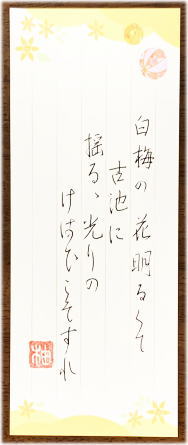 白梅の花明るくて
古池に
揺るゝ光りの
けはひこそすれ